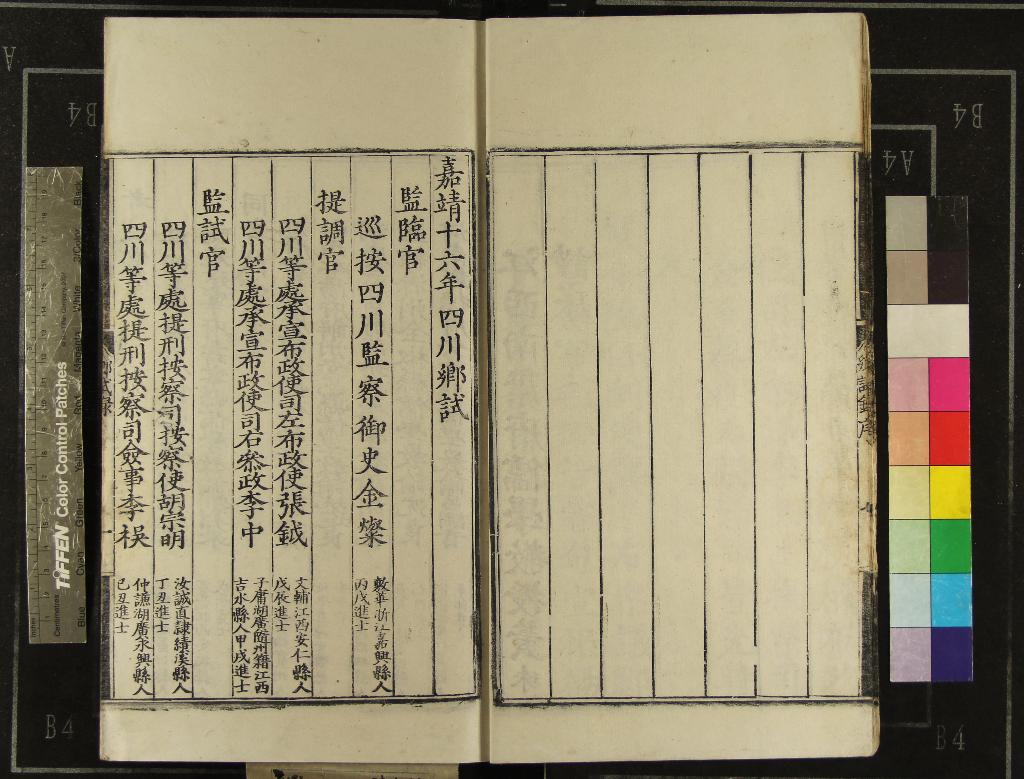 嘉靖十六年四川鄉試
監臨官
巡按四川監察御史金燦
敷華浙江嘉興縣人
丙戌進士
提調官
四川等處承宣布政使司左布政使張鉞
文輔江西安仁縣人
戊辰進士
四川等處承宣布政使司右叅政李中
子庸湖廣隨州籍江西
吉水縣人甲戌進士
監試官
四川等處提刑按察司按察使胡宗明
汝誠直隷績溪縣人
丁丑進士
四川等處提刑按察司僉事李
仲謙湖廣永興縣人
己丑進士
鄉試錄
TIFFEN Color Control Patches
Centimetres
Inches
Blue
Cyan
Green
Yellow
Red
Magenta
White
Black
B4
B4
A4
B4
B4
A